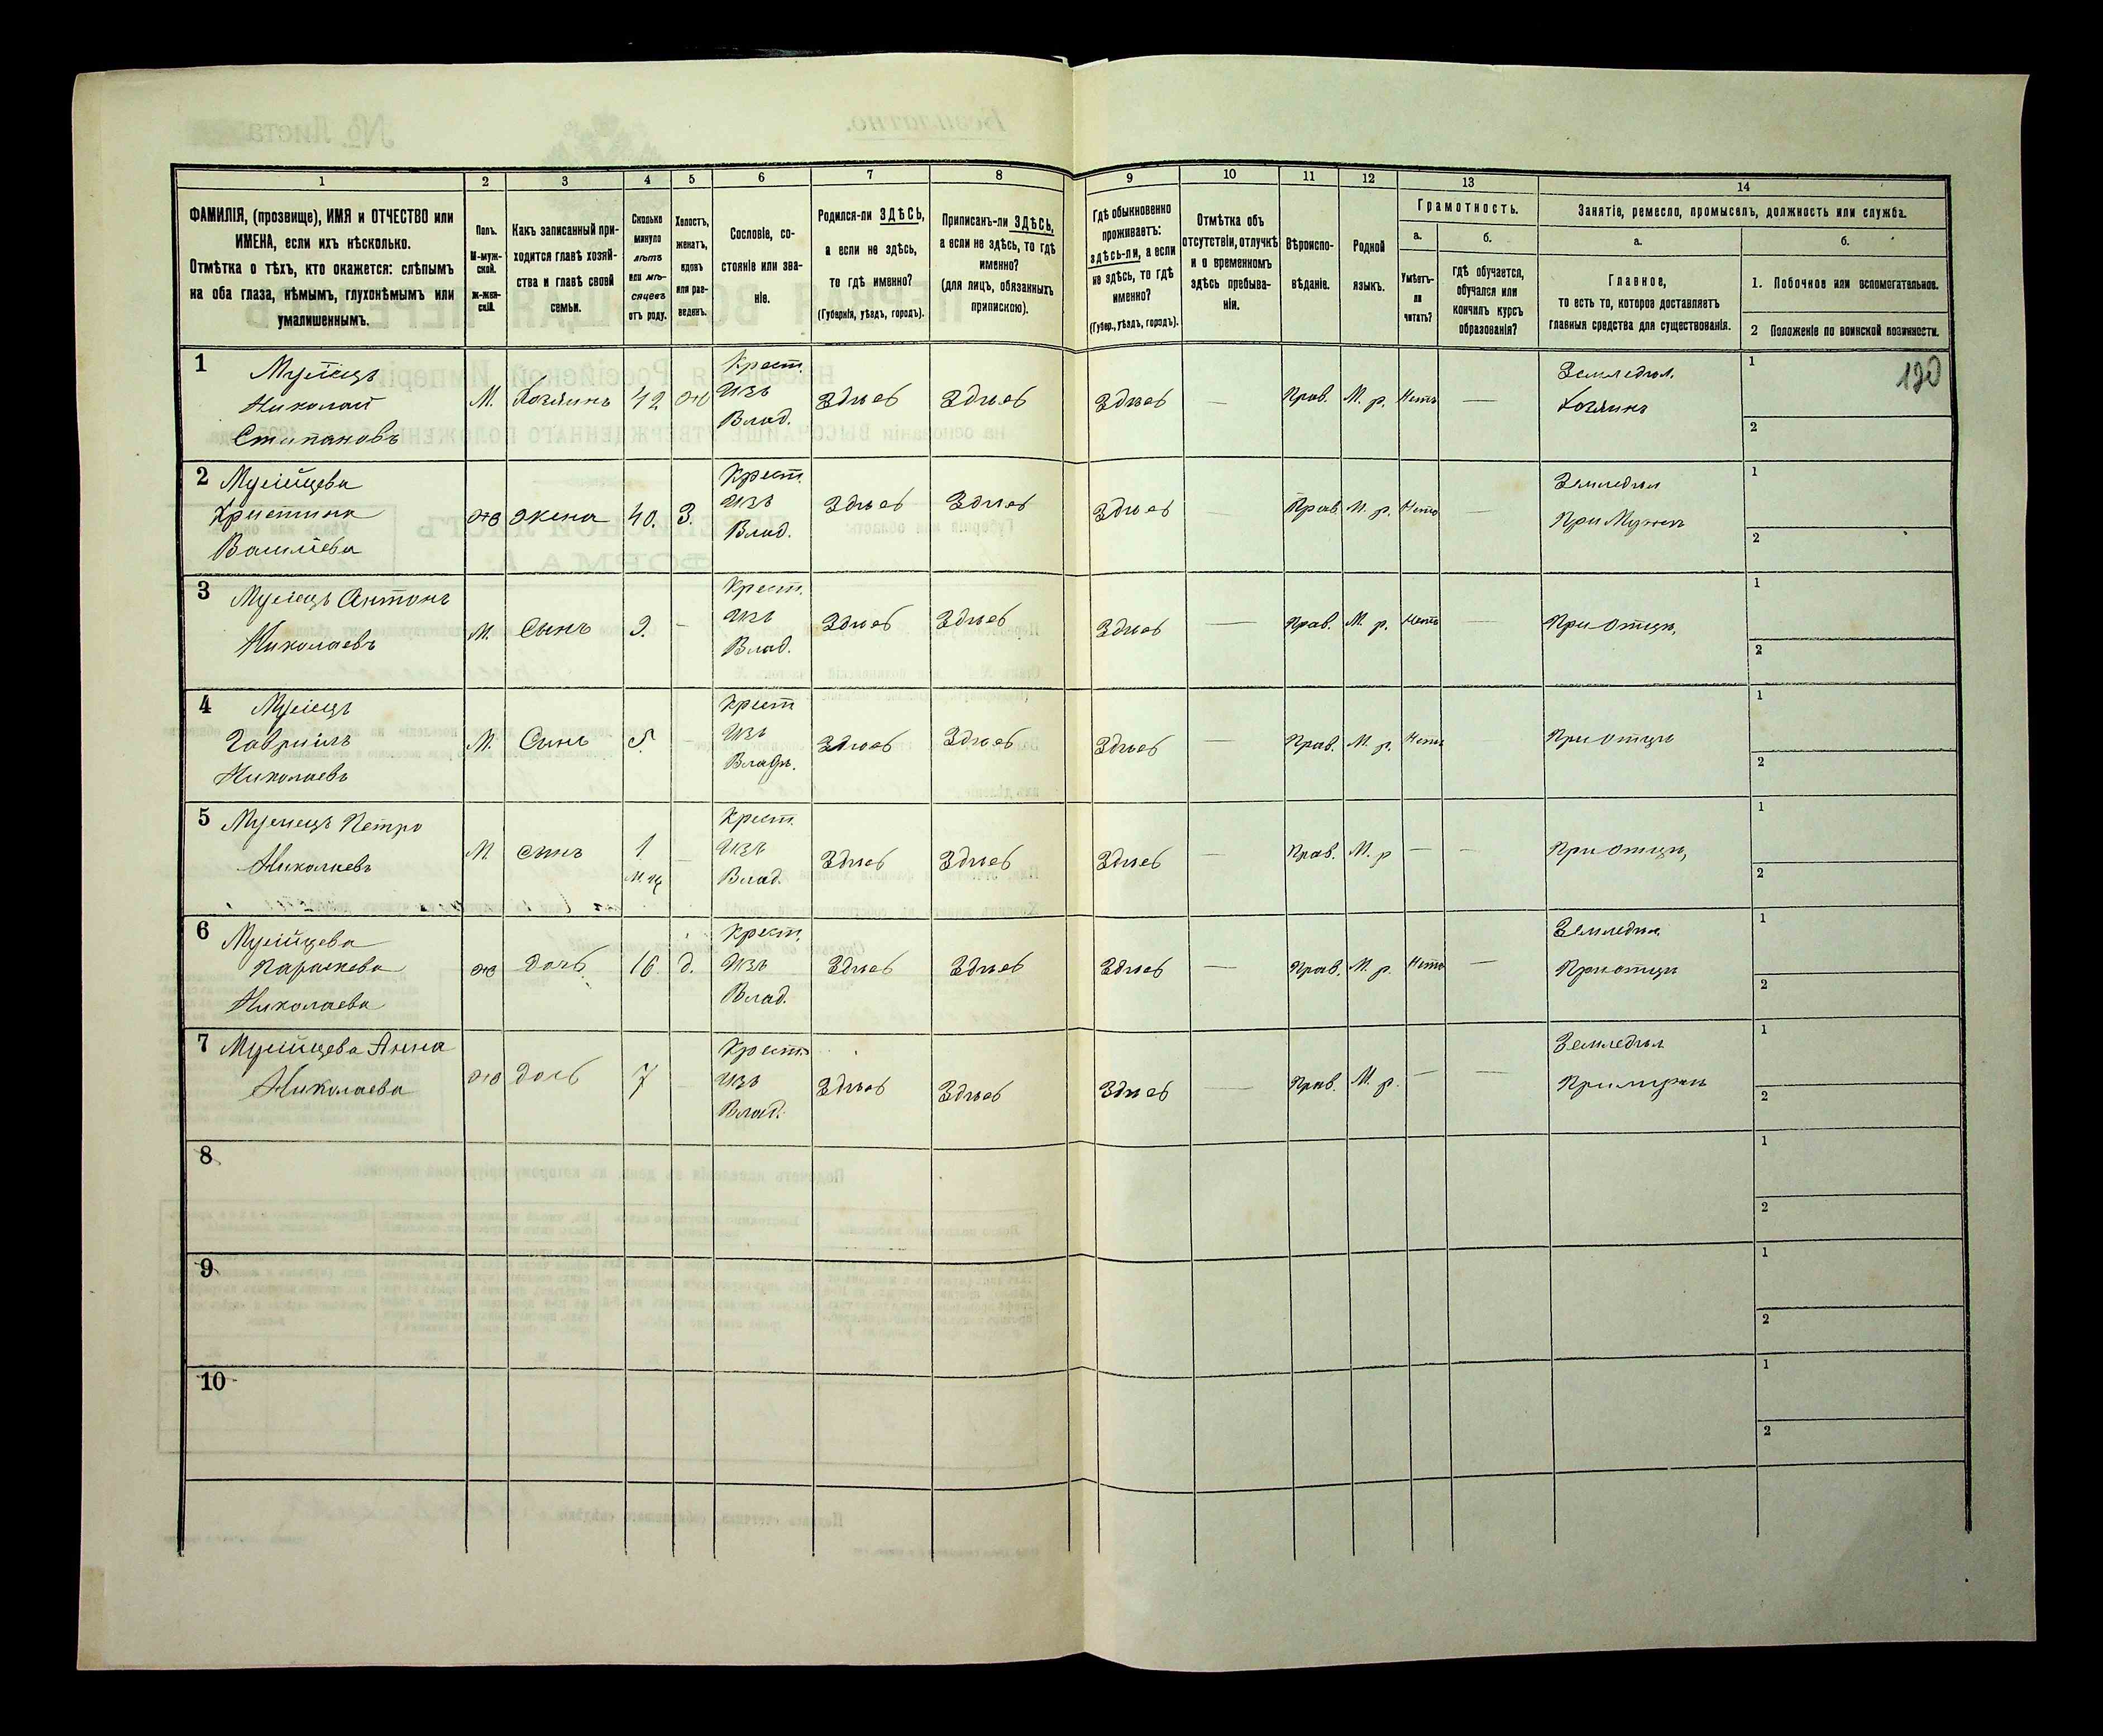 1 2 3 4 5 6 7 8 9 10 11 12 13 14
ФАМИЛІЯ, (прозвище), ИМЯ и ОТЧЕСТВО или
ИМЕНА, если ихъ нѣсколько.
Отмѣтка о тѣхъ, кто окажется: слѣпымъ
на оба глаза, нѣмымъ, глухонѣмымъ или
умалишеннымъ.
Полъ.
М-муж-
ской.
ж-жен-
скій.
Какъ записанный при-
ходится главѣ хозяй-
ства и главѣ своей
семьи.
Сколько
минуло
лѣтъ
или мѣ-
сяцевъ
отъ роду.
Холостъ,
женатъ,
вдовъ
или раз-
веденъ.
Сословіе, со-
стояніе или зва-
ніе.
Родился-ли ЗДѢСЬ,
а если не здѣсь,
то гдѣ именно?
(Губернія, уѣздъ, городъ).
Приписанъ-ли ЗДѢСЬ,
а если не здѣсь, то гдѣ
именно?
(для лицъ, обязанныхъ
припискою).
Гдѣ обыкновенно
проживаетъ:
здѣсь-ли, а если
не здѣсь, то гдѣ
именно?
(Губер., уѣздъ, городъ).
Отмѣтка объ
отсутствіи, отлучкѣ
и о временномъ
здѣсь пребыва-
ніи.
Вѣроиспо-
вѣданіе.
Родной
языкъ.
Грамотность.
а.
Умѣетъ-
ли
читать?
б.
гдѣ обучается,
обучался или
кончилъ курсъ
образованія?
Занятіе, ремесло, промыселъ, должность или служба.
а.
Главное,
то есть то, которое доставляетъ
главныя средства для существованія.
б.
1. Побочное или вспомогательное.
2 Положеніе по воинской повинности.
190
1
Николай
Степановъ
М. Хозяинъ 42 Ж
Крест.
Изъ
Влад.
Здѣсь Здѣсь Здѣсь — Прав. М. р. Нетъ —
Земледѣл.
Хозяинъ
1
2
2
Христина
Василіева
Ж Жена 40. З.
Крест.
Изъ
Влад.
Здѣсь Здѣсь Здѣсь — Прав. М. р. Нетъ —
Земледѣл
При Мужѣ
1
2
3 Антонъ
Николаевъ
М. Сынъ 9. —
Крест.
Изъ
Влад.
Здѣсь Здѣсь Здѣсь — Прав. М. р. Нетъ —
При Отцѣ,
1
2
4
Гавріилъ
Николаевъ
М. Сынъ 5. —
Крест
Изъ
Влад.
Здѣсь Здѣсь Здѣсь — Прав. М. р. Нетъ —
При Отцѣ
1
2
5 Петро
Николаевъ
М. сынъ 1 —
Крест.
Изъ
Влад.
Здѣсь Здѣсь Здѣсь — Прав. М. р — —
При Отцѣ,
1
2
6
Параскева
Николаева
Ж дочь. 16. д.
Крест.
Изъ
Влад.
Здѣсь Здѣсь Здѣсь — Прав. М. р. Нетъ —
Земледѣл.
При отцѣ
1
2
7 Анна
Николаева
Ж дочь 7 —
Крест.
Изъ
Влад.
Здѣсь Здѣсь Здѣсь — Прав. М. р. — —
Земледѣл
1
2
8
1
2
9
1
2
10
1
2